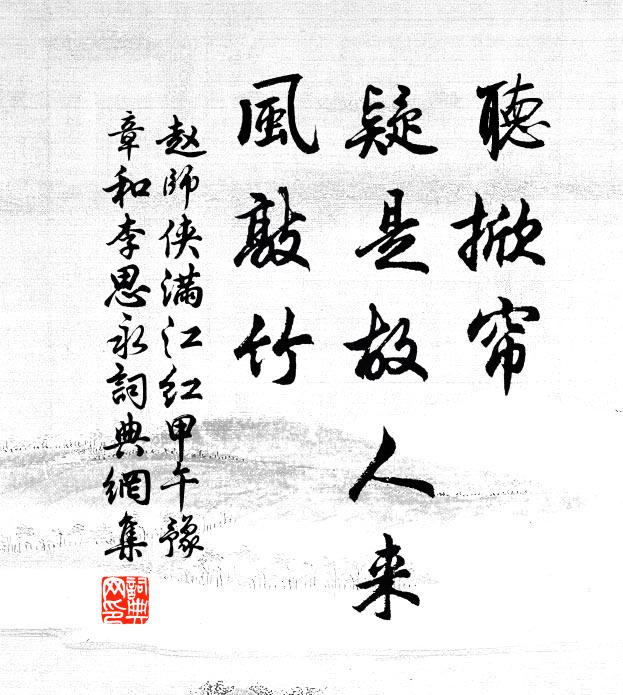 聽掀帘
疑是故人来
風敲竹
赵師侠满江红甲午豫
章和李思永詞典網集
詞典网印